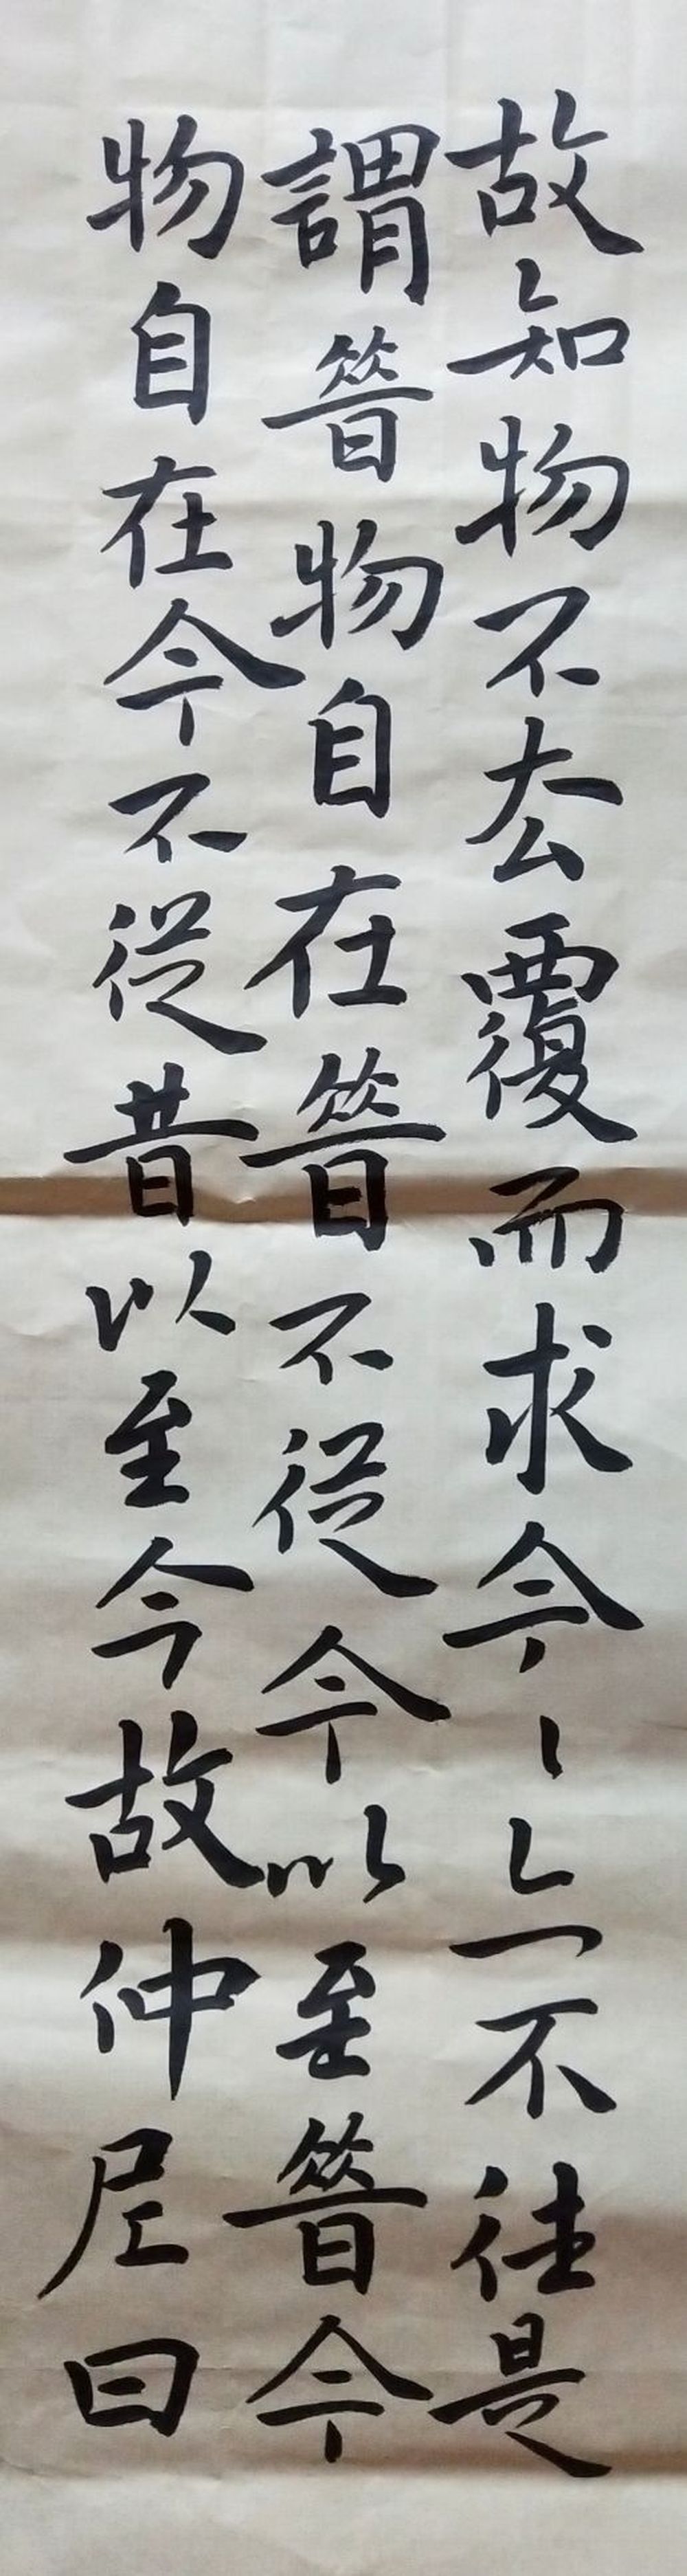 故知物不去覆而求今々亦不往是
謂昔物自在昔不從今以至昔今
物自在今不從昔以至今故仲尼曰